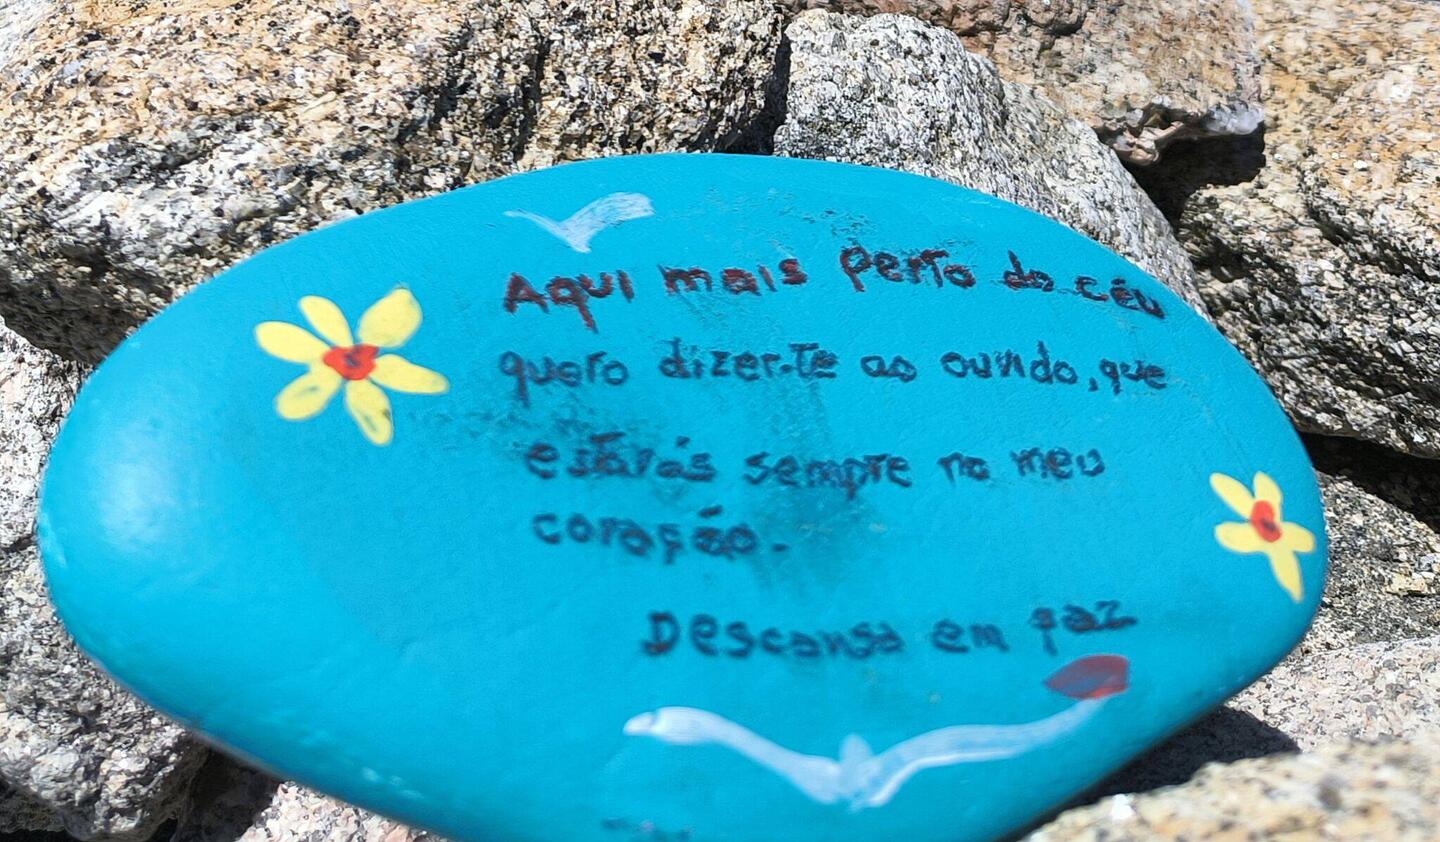 Aqui mais perto do céu
quero dizer-te ao ouvido, que
estarás sempre no meu
coração.
Descansa em paz